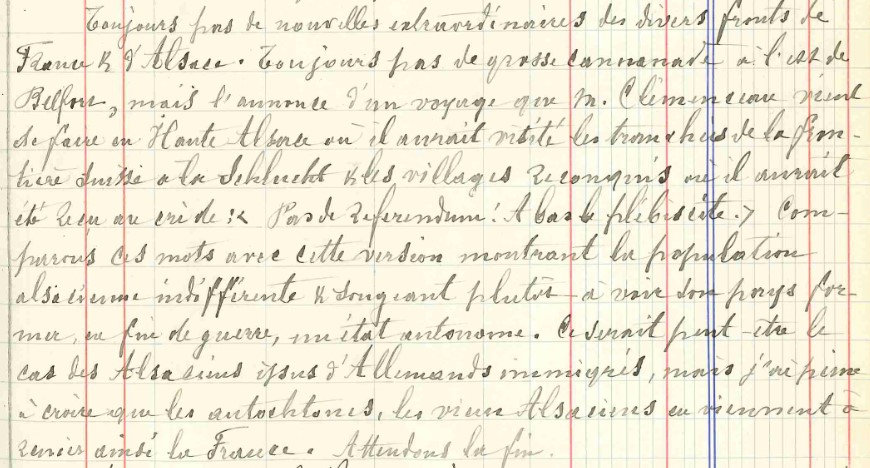 Toujours pas de nouvelles extraordinaires des divers fronts de
France & d'Alsace. Toujours pas de grosse cannonade à l'est de
Belfort, mais l'annonce d'un voyage que M. Clémenceau vient
de faire en Haute Alsace où il aurait visité les tranchées de la fron-
tière suisse à la Schlucht & les villages reconquis où il aurait
été reçu au cri de : < Pas de referendum ! A bas le plébiscite. > Com-
parons ces mots avec cette version montrant la population
alsacienne indifférente & songeant plutôt à voir son pays for-
mer, en fin de guerre, un état autonome. Ce serait peut-être le
cas des Alsaciens issus d'Allemands immigrés, mais j'ai peine
à croire que les autochtones, les vieux Alsaciens en viennent à
renier ainsi la France. Attendons la fin.